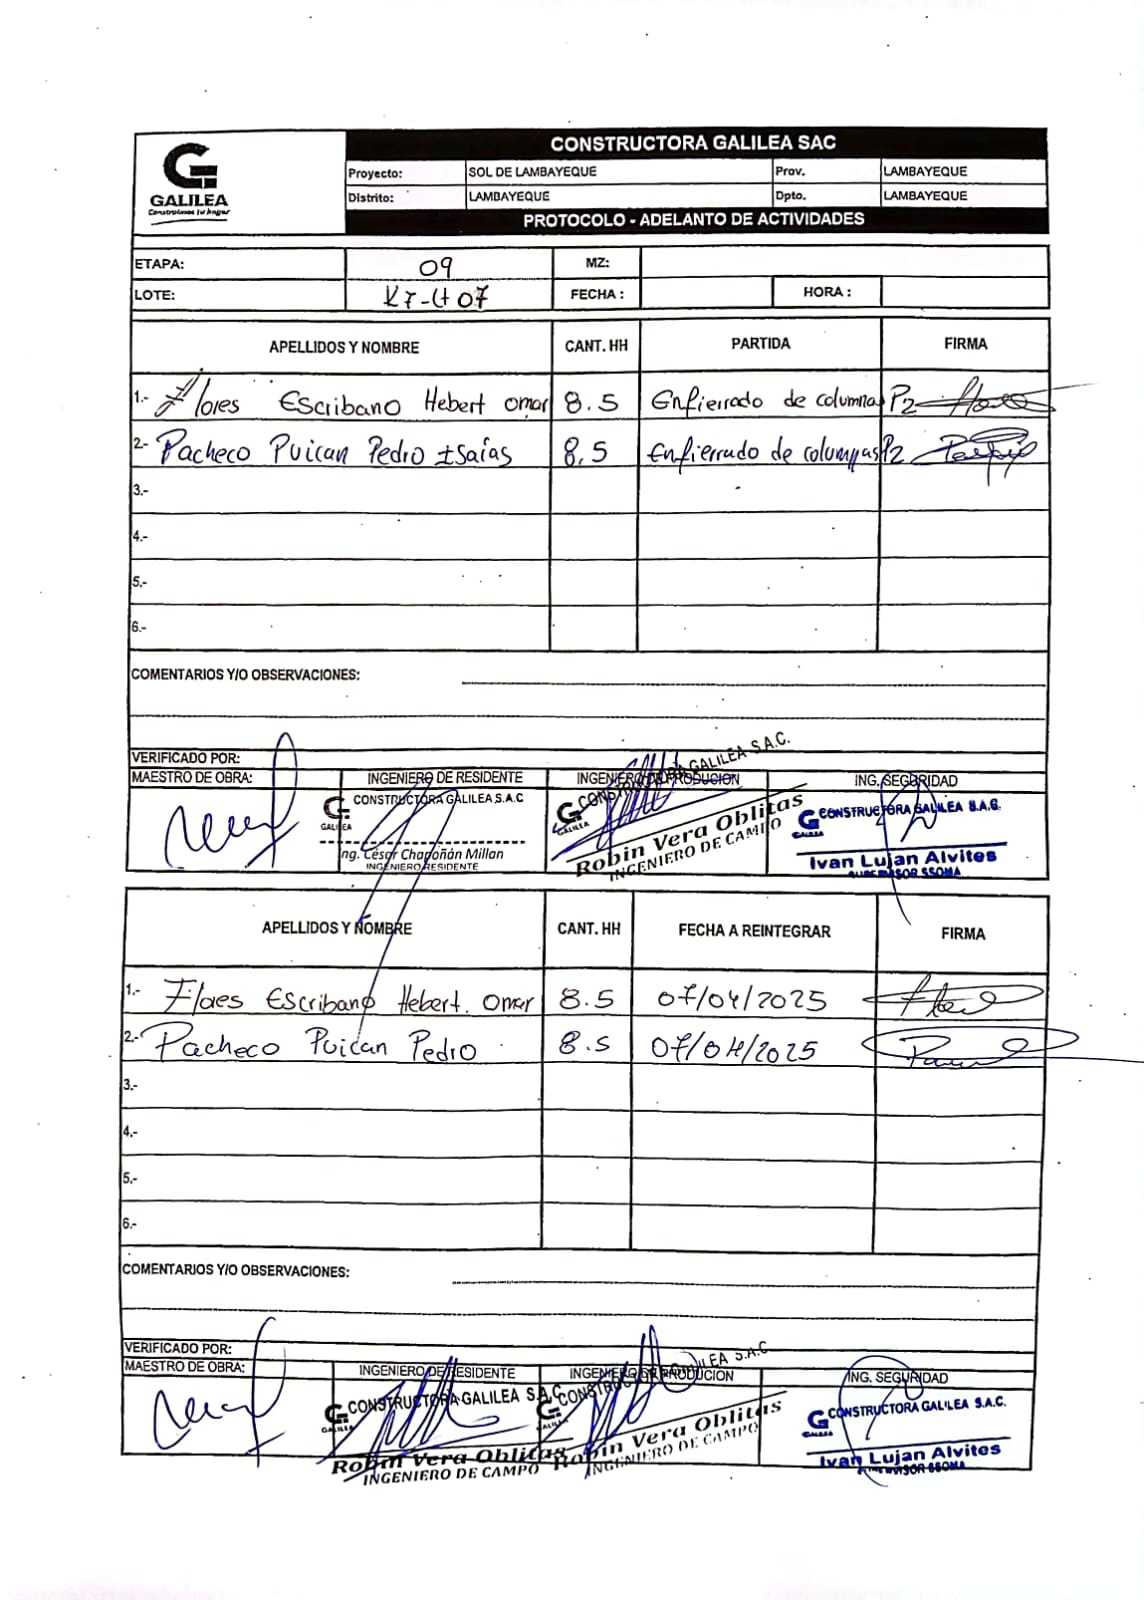 CONSTRUCTORA GALILEA SAC
GALILEA
Construimos tu hogar
Proyecto: SOL DE LAMBAYEQUE Prov. LAMBAYEQUE
Distrito: LAMBAYEQUE Dpto. LAMBAYEQUE
PROTOCOLO - ADELANTO DE ACTIVIDADES
ETAPA: 09 MZ:
LOTE: K7-Lt 07 FECHA : HORA :
APELLIDOS Y NOMBRE CANT. HH PARTIDA FIRMA
1.- Flores Escribano Hebert Omar 8.5 Enfierrado de columnas P2
2.- Pacheco Puican Pedro Isaías 8.5 Enfierrado de columnas P2
3.-
4.-
5.-
6.-
COMENTARIOS Y/O OBSERVACIONES:
VERIFICADO POR:
MAESTRO DE OBRA: INGENIERO DE RESIDENTE INGENIERO DE PRODUCION ING. SEGURIDAD
CONSTRUCTORA GALILEA S.A.C
GALILEA
Ing. César Chapoñán Millan
INGENIERO RESIDENTE
CONSTRUCTORA GALILEA S.A.C.
GALILEA
Robin Vera Oblitas
INGENIERO DE CAMPO
CONSTRUCTORA GALILEA S.A.C.
GALILEA
Ivan Lujan Alvites
SUPERVISOR SSOMA
APELLIDOS Y NOMBRE CANT. HH FECHA A REINTEGRAR FIRMA
1.- Flores Escribano Hebert. Omar 8.5 07/04/2025
2.- Pacheco Puican Pedro 8.5 07/04/2025
3.-
4.-
5.-
6.-
COMENTARIOS Y/O OBSERVACIONES:
VERIFICADO POR:
MAESTRO DE OBRA: INGENIERO DE RESIDENTE INGENIERO DE PRODUCION ING. SEGURIDAD
CONSTRUCTORA GALILEA S.A.C
GALILEA
Robin Vera Oblitas
INGENIERO DE CAMPO
CONSTRUCTORA GALILEA S.A.C
GALILEA
Robin Vera Oblitas
INGENIERO DE CAMPO
CONSTRUCTORA GALILEA S.A.C.
GALILEA
Ivan Lujan Alvites
SUPERVISOR SSOMA